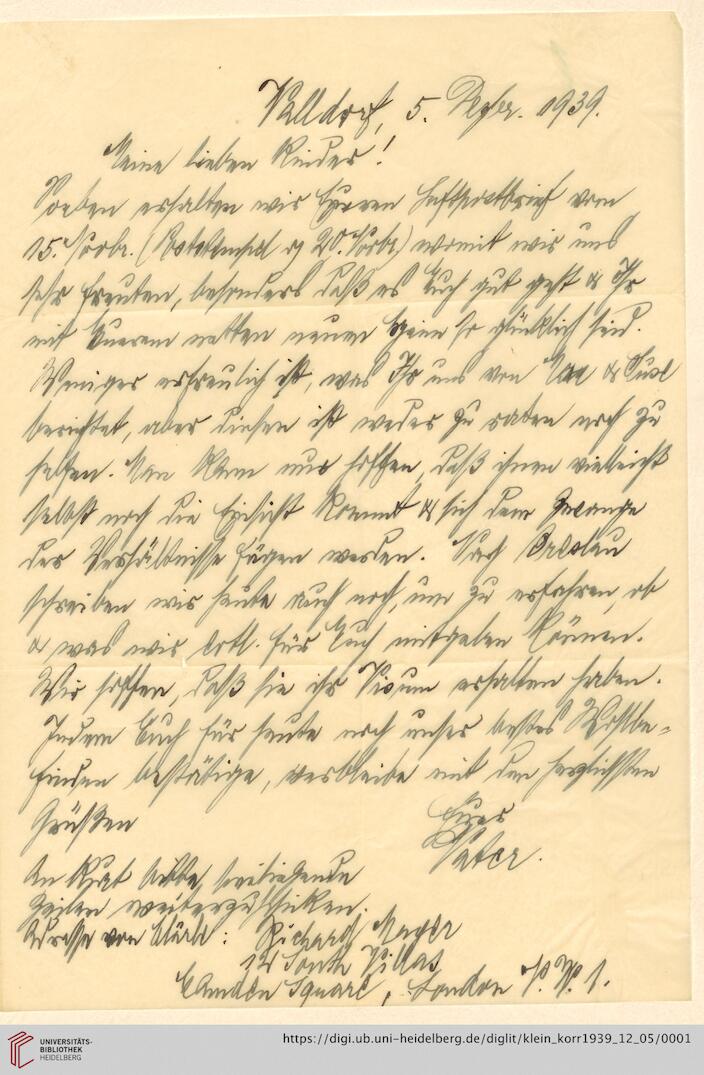 Walldorf, 5. Dezbr. 1939.
Meine lieben Kinder!
Soeben erhalten wir Eueren Luftpostbrief vom
15. Novbr. (Poststempel 20. Novbr.) womit wir uns
sehr freuten, besonders daß es Euch gut geht & Ihr
mit Euerem netten neuen Heim so glücklich seid.
Weniger erfreulich ist, was Ihr uns von &
berichtet, aber diesen ist weder zu raten noch zu
helfen. Man kann nur hoffen, daß ihnen vielleicht
selbst noch die Einsicht kommt & sich dem Zwange
der Verhältnisse fügen werden. Nach Breslau
schreiben wir heute auch noch, um zu erfahren, ob
& was wir evtl. für Euch mitgeben können.
Wir hoffen, daß sie ihr Visum erhalten haben.
Indem Euch für heute noch unser bestes Wohlbe-
finden bestätige, verbleibe mit den herzlichsten
Grüßen
Euer
Vater.
An Kurt bitte beiliegende
Zeilen weiterzuschicken.
Adresse von : Richard Mayer
12 South Villas
Camden Square, London N.W. 1.
UNIVERSITÄTS-
BIBLIOTHEK
HEIDELBERG
https://digi.ub.uni-heidelberg.de/diglit/klein_korr1939_12_05/0001